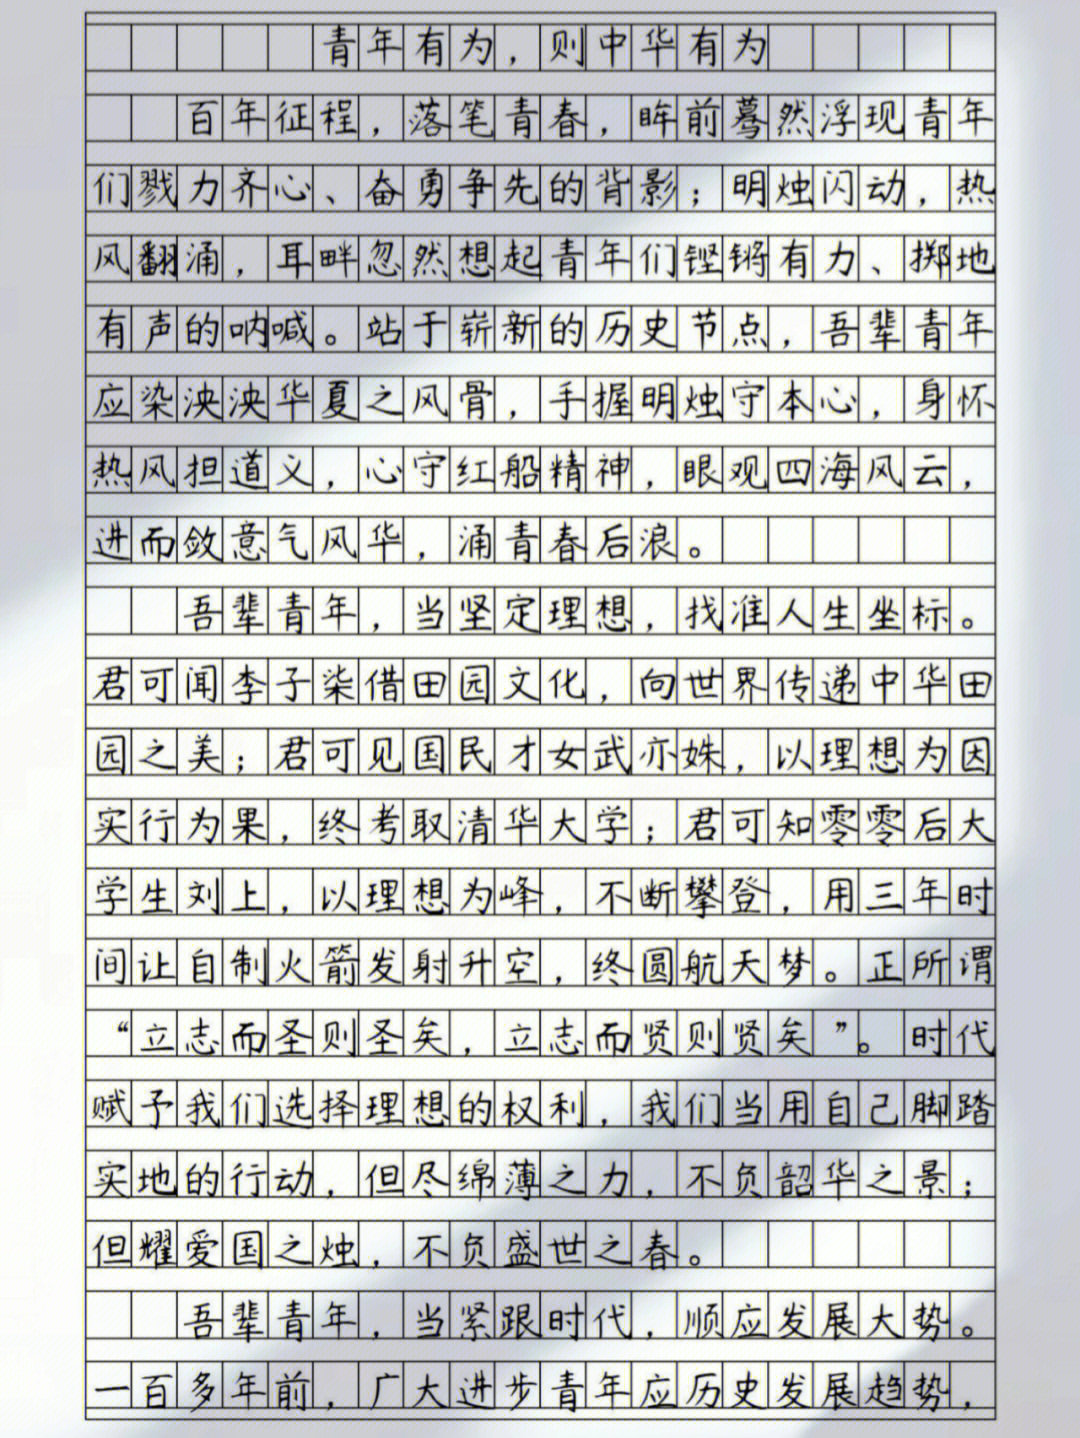 青年有为，则中华有为
百年征程，落笔青春，眸前蓦然浮现青年
们戮力齐心、奋勇争先的背影；明烛闪动，热
风翻涌，耳畔忽然想起青年们铿锵有力、掷地
有声的呐喊。站于崭新的历史节点，吾辈青年
应染泱泱华夏之风骨，手握明烛守本心，身怀
热风担道义，心守红船精神，眼观四海风云，
进而敛意气风华，涌青春后浪。
吾辈青年，当坚定理想，找准人生坐标。
君可闻李子柒借田园文化，向世界传递中华田
园之美；君可见国民才女武亦姝，以理想为因
实行为果，终考取清华大学；君可知零零后大
学生刘上，以理想为峰，不断攀登，用三年时
间让自制火箭发射升空，终圆航天梦。正所谓
“立志而圣则圣矣，立志而贤则贤矣”。时代
赋予我们选择理想的权利，我们当用自己脚踏
实地的行动，但尽绵薄之力，不负韶华之景；
但耀爱国之烛，不负盛世之春。
吾辈青年，当紧跟时代，顺应发展大势。
一百多年前，广大进步青年应历史发展趋势，